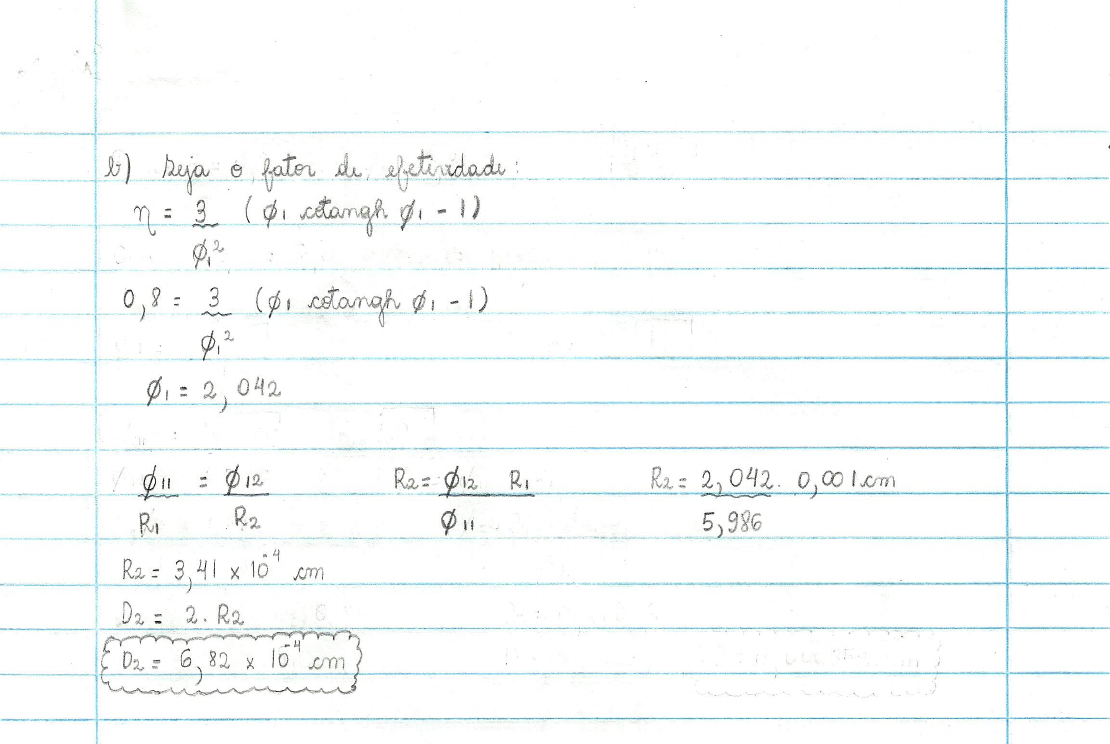 b) Seja o fator de efetividade:
η = 3/ϕ₁² (ϕ₁ cotangh ϕ₁ - 1)
0,8 = 3/ϕ₁² (ϕ₁ cotangh ϕ₁ - 1)
ϕ₁ = 2,042
ϕ₁₁/R₁ = ϕ₁₂/R₂ R₂ = ϕ₁₂ R₁/ϕ₁₁ R₂ = 2,042 . 0,001 cm/5,986
R₂ = 3,41 x 10⁻⁴ cm
D₂ = 2 . R₂
D₂ = 6,82 x 10⁻⁴ cm